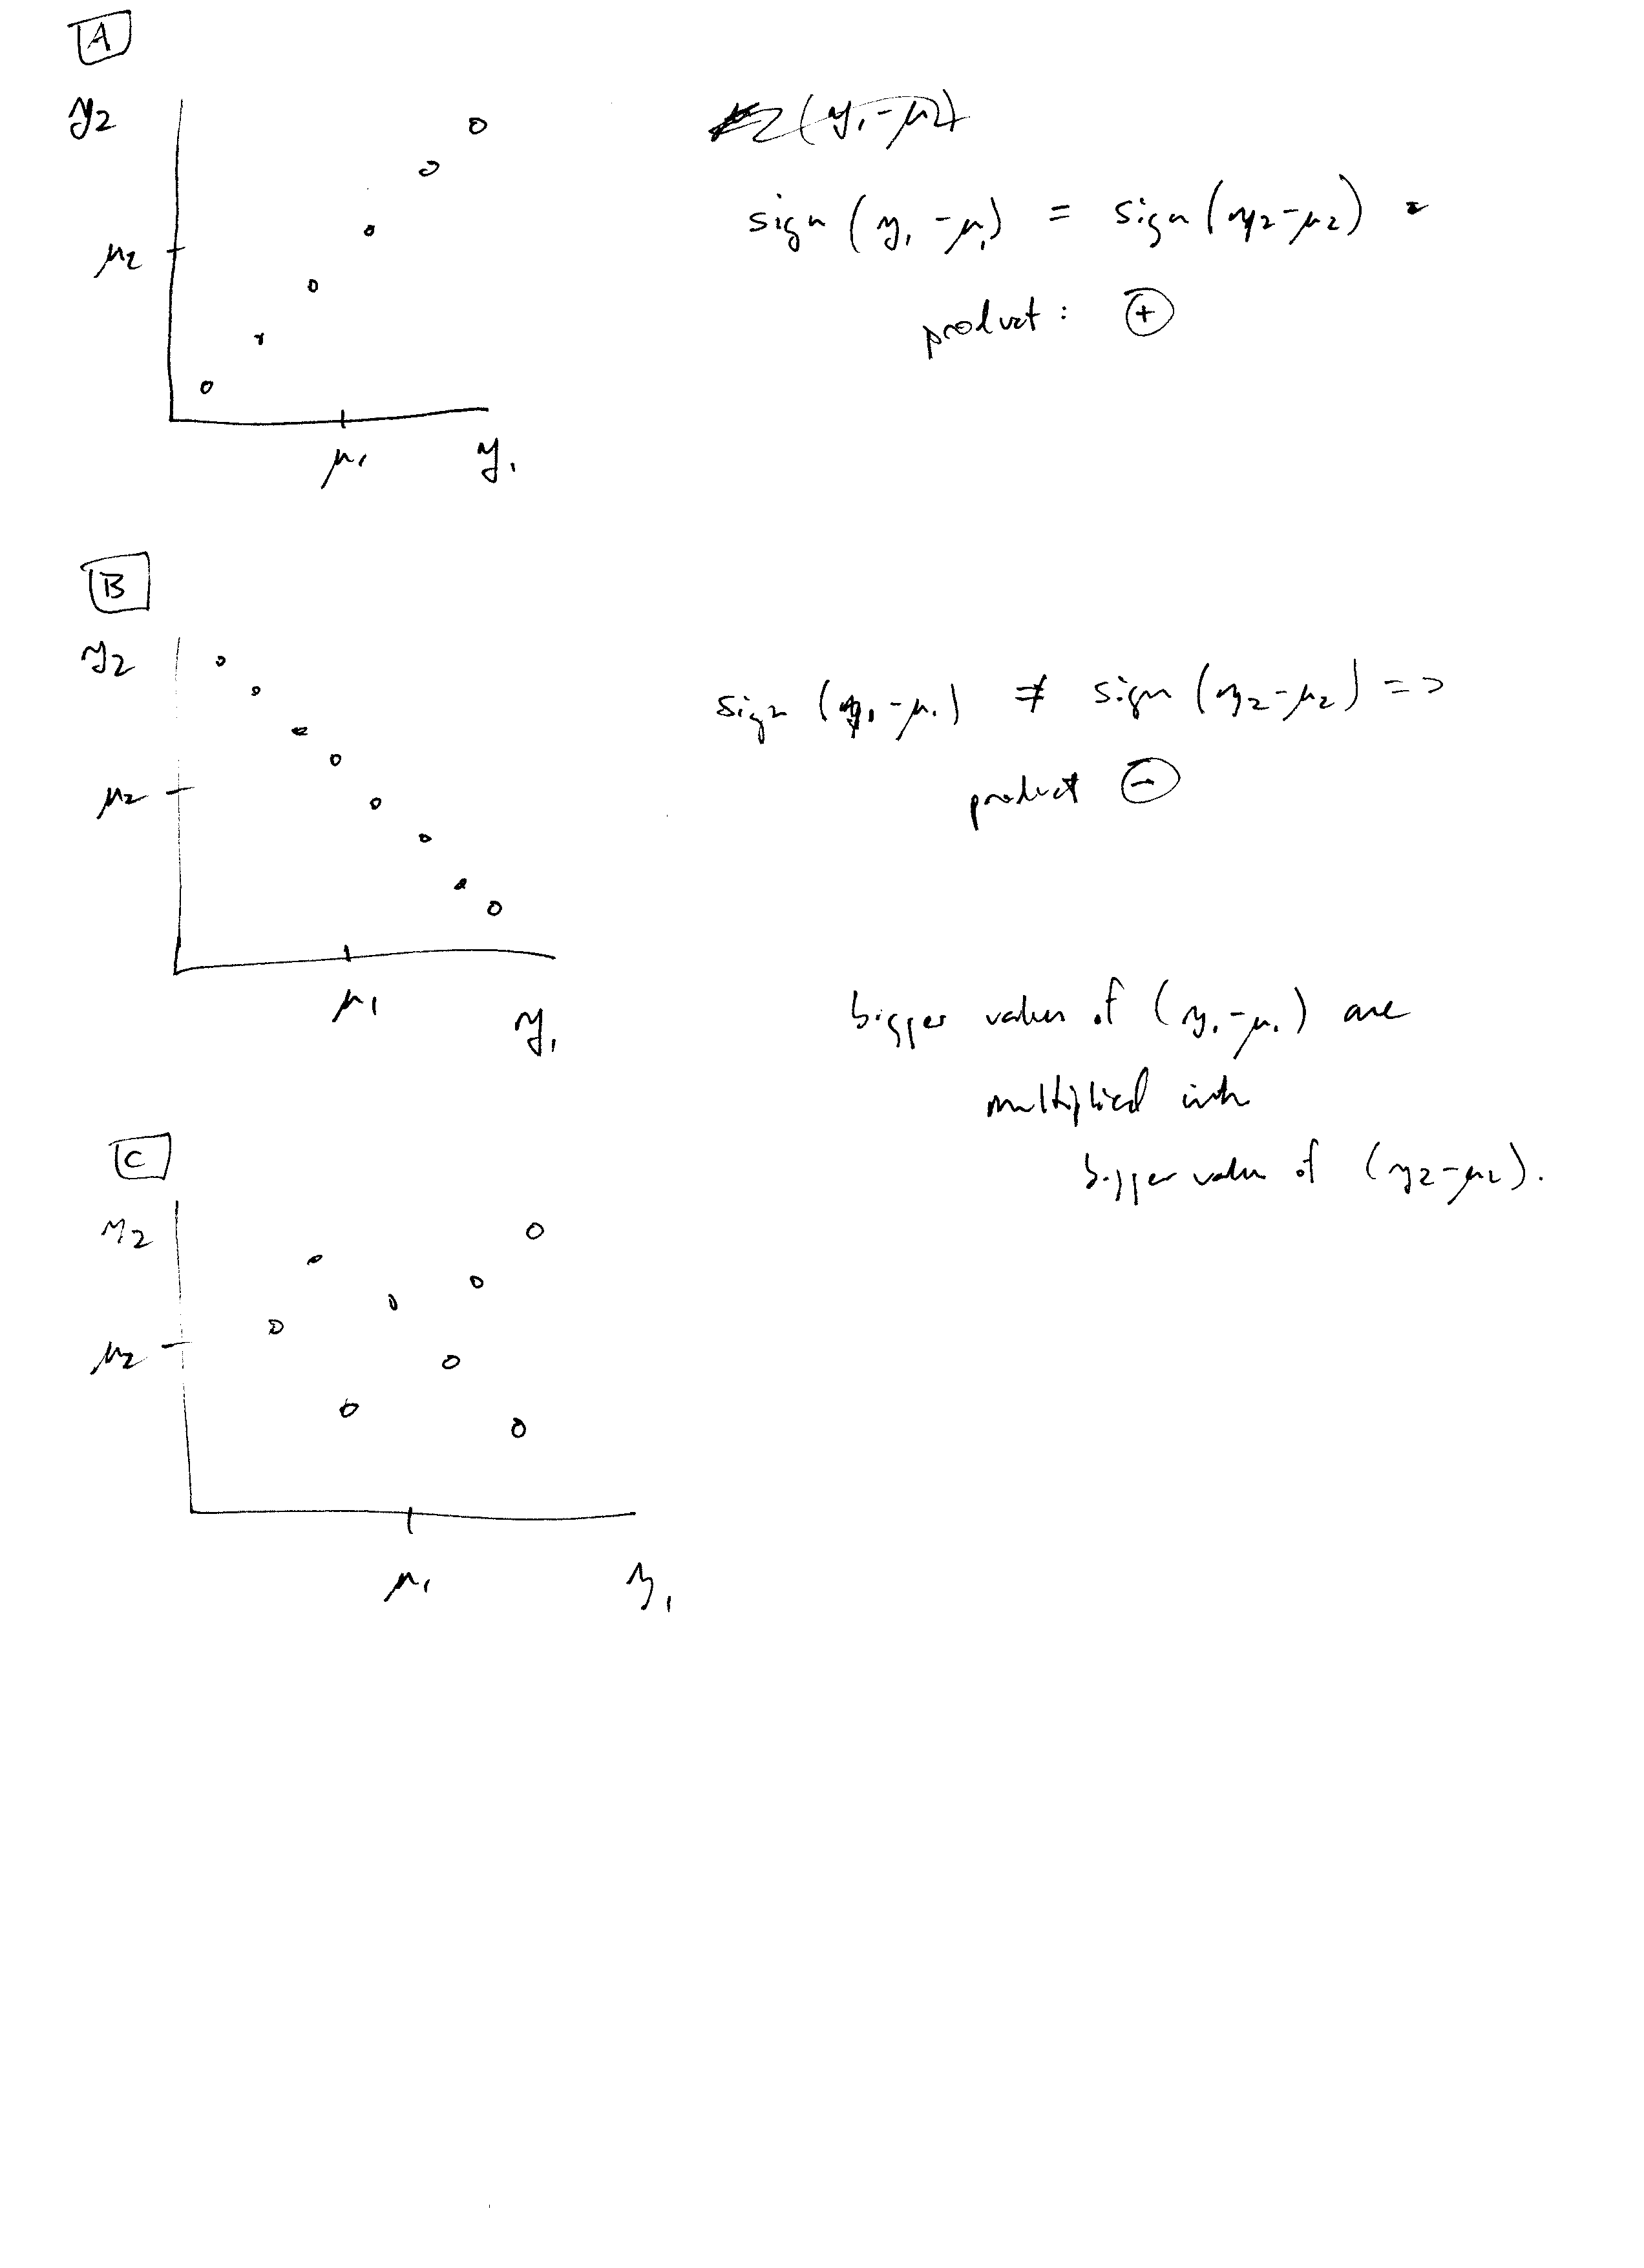 A
y2
μ2
μ1
y1
(y1-μ2)
sign (y1-μ1) = sign (y2-μ2)
product: +
B
y2
μ2
μ1
y1
sign (y1-μ1) ≠ sign (y2-μ2) =>
product -
bigger value of (y1-μ1) are
multiplied with
bigger value of (y2-μ2).
C
y2
μ2
μ1
y1